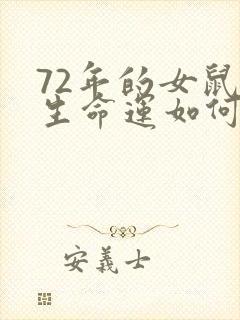 72年的女鼠
生命运如何
安義士